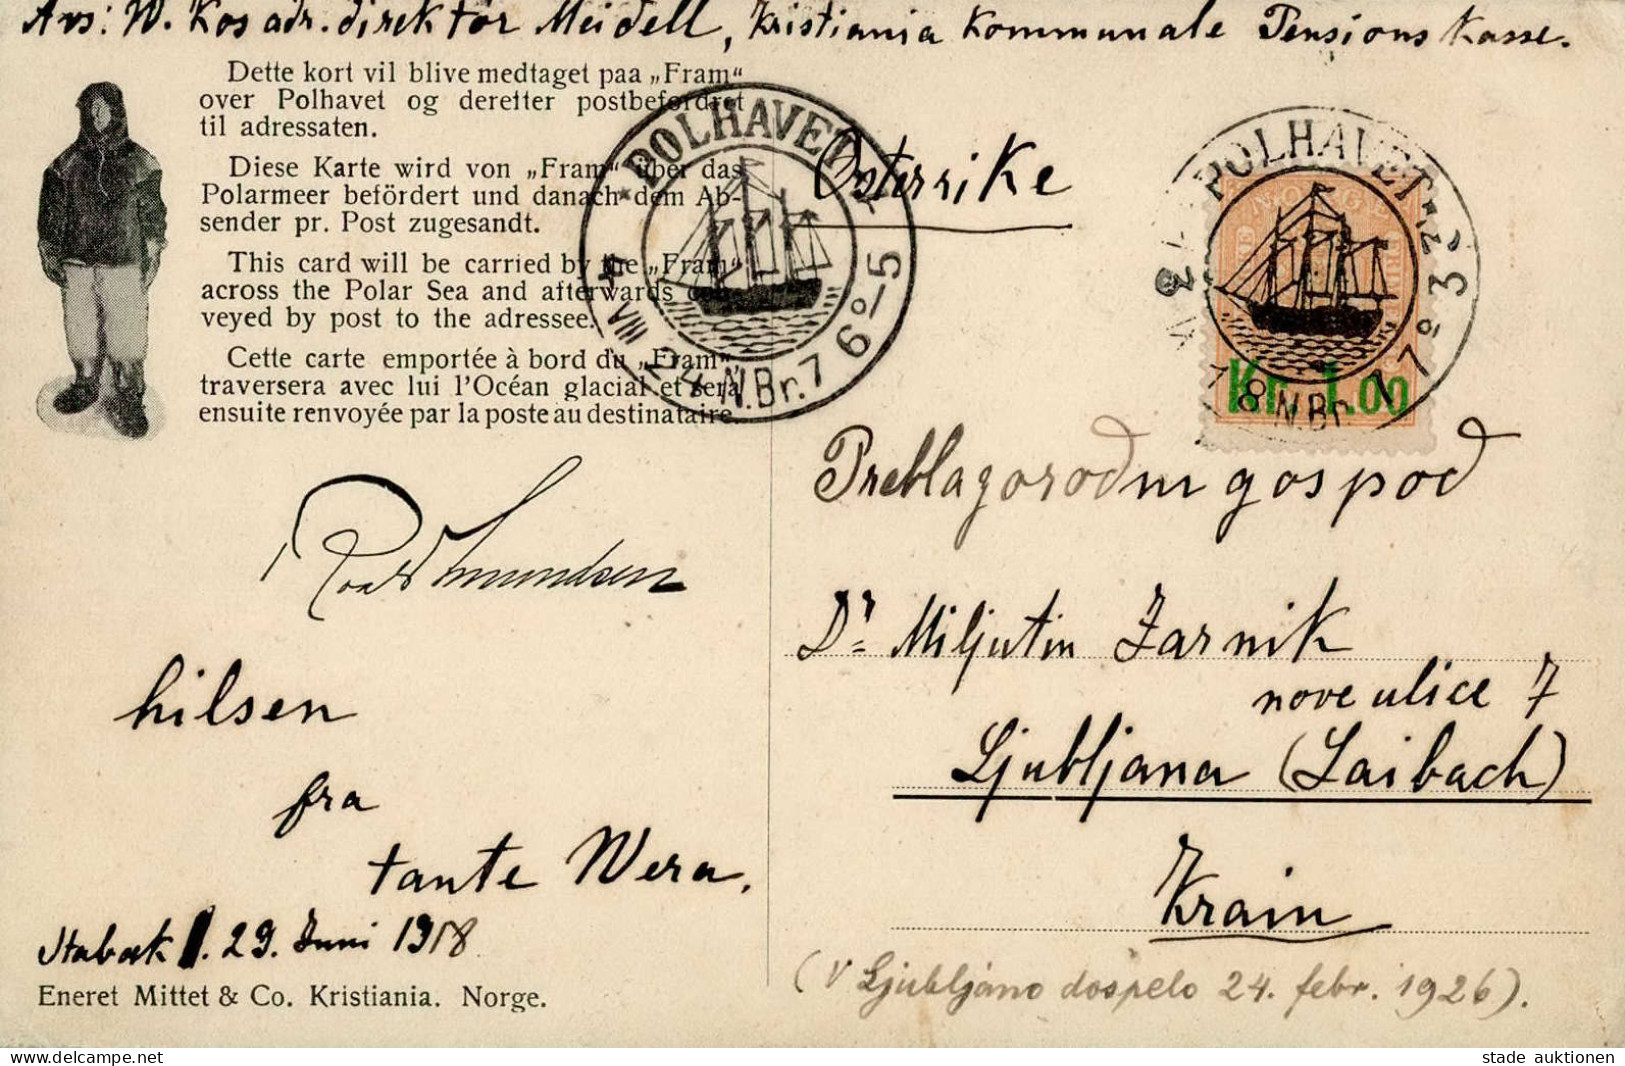 Avs: W. Kos adr. direktör Meidell, Kristiania Kommunale Pensions Kasse.
Dette kort vil blive medtaget paa „Fram“
over Polhavet og derefter postbefordret
til adressaten.
Diese Karte wird von „Fram“ über das
Polarmeer befördert und danach dem Ab-
sender pr. Post zugesandt.
This card will be carried by the „Fram“
across the Polar Sea and afterwards con-
veyed by post to the adressee.
Cette carte emportée à bord du „Fram“,
traversera avec lui l'Océan glacial et sera
ensuite renvoyée par la poste au destinataire.
POLHAVET
VIII 24 N.Br. 76º-5
Österrike
POLHAVET
18 N.Br. 77º 3
NORGE
Kr. 1.00
Roald Amundsen
Preblagorodni gospod
Dr. Miljutin Zarnik
nove ulice 7
Ljubljana (Laibach)
Krain
hilsen
fra
tante Wera.
Stabæk 29. Juni 1918
Eneret Mittet & Co. Kristiania. Norge.
(V Ljubljano dospelo 24. febr. 1926).
www.delcampe.net
stade auktionen